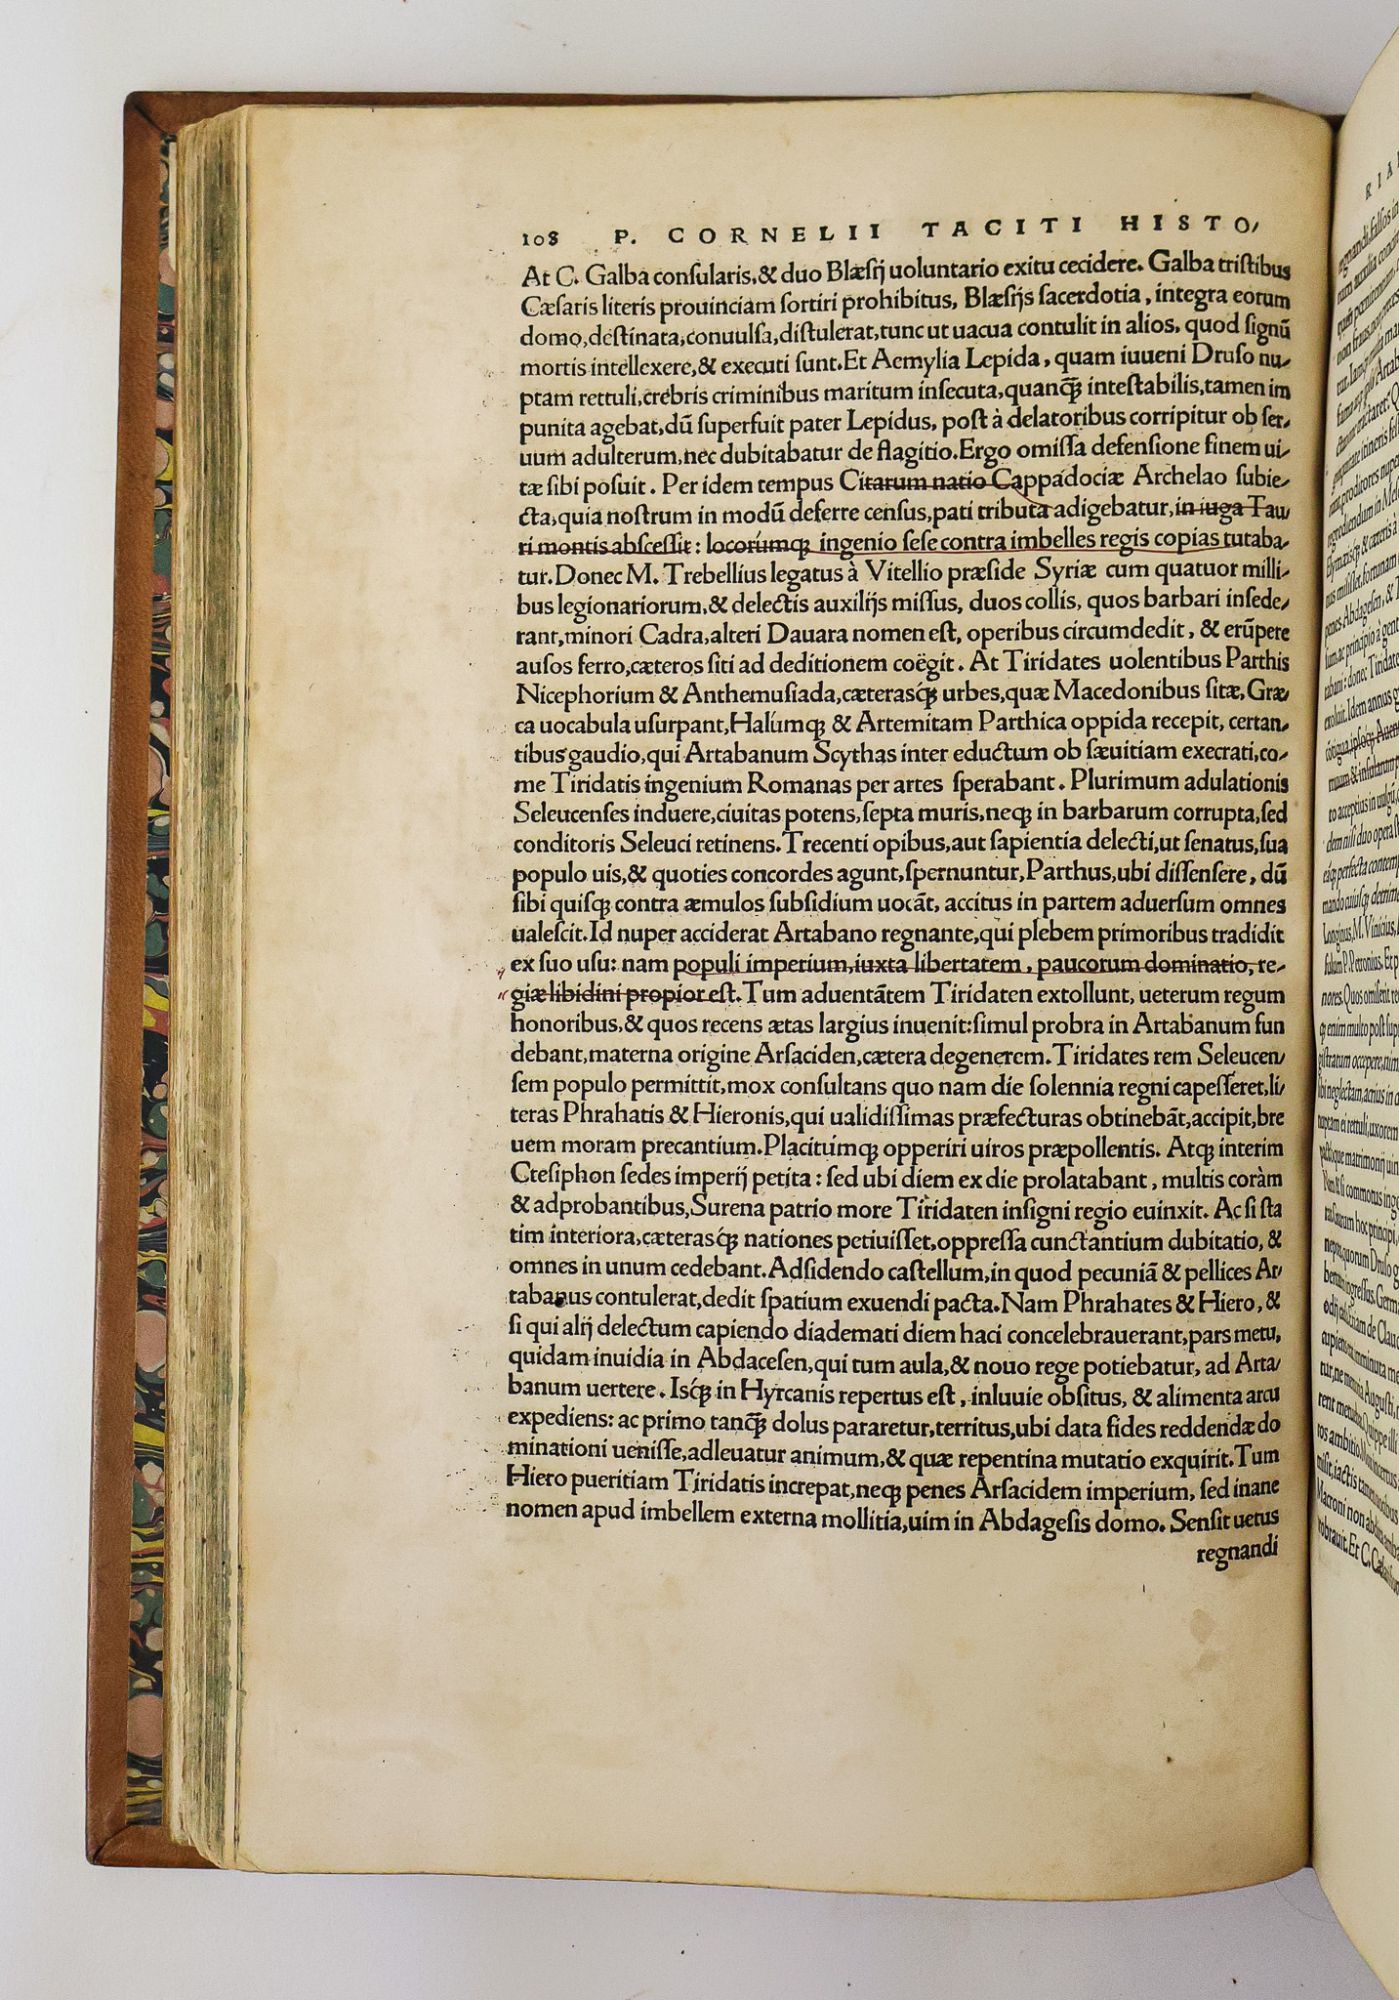 108 P. CORNELII TACITI HISTO/
At C. Galba conſularis,& duo Blæſiĳ uoluntario exitu cecidere. Galba triſtibus
Cæſaris literis prouinciam ſortiri prohibitus, Blæſiĳs ſacerdotia, integra eorum
domo,deſtinata,conuulſa,diſtulerat,tunc ut uacua contulit in alios, quod ſignũ
mortis intellexere,& executi ſunt.Et Aemylia Lepida, quam iuueni Druſo nu/
ptam rettuli,crebris criminibus maritum inſecuta,quanq̃ inteſtabilis,tamen im
punita agebat,dũ ſuperfuit pater Lepidus, poſt à delatoribus corripitur ob ſer/
uum adulterum,nec dubitabatur de flagitio.Ergo omiſſa defenſione finem ui/
tæ ſibi poſuit. Per idem tempus Citarum natio Cappadociæ Archelao ſubie/
cta,quia noſtrum in modũ deferre cenſus,pati tributa adigebatur,in iuga Tau
ri montis abſceſſit: locorúmq; ingenio ſeſe contra imbelles regis copias tutaba/
tur.Donec M. Trebellius legatus à Vitellio præſide Syriæ cum quatuor milli/
bus legionariorum,& delectis auxilĳs miſſus, duos collis, quos barbari inſede/
rant,minori Cadra,alteri Dauara nomen eſt, operibus circumdedit, & erũpere
auſos ferro,cæteros ſiti ad deditionem coëgit. At Tiridates uolentibus Parthis
Nicephorium & Anthemuſiada,cæterasq́; urbes,quæ Macedonibus ſitæ,Græ/
ca uocabula uſurpant,Halúmq; & Artemitam Parthica oppida recepit, certan/
tibus gaudio,qui Artabanum Scythas inter eductum ob ſæuitiam execrati,co/
me Tiridatis ingenium Romanas per artes ſperabant. Plurimum adulationis
Seleucenſes induere,ciuitas potens,ſepta muris,neq; in barbarum corrupta,ſed
conditoris Seleuci retinens.Trecenti opibus,aut ſapientia delecti,ut ſenatus,ſua
populo uis,& quoties concordes agunt,ſpernuntur,Parthus,ubi diſſenſere, dũ
ſibi quiſq; contra æmulos ſubſidium uocãt, accitus in partem aduerſum omnes
ualeſcit.Id nuper acciderat Artabano regnante,qui plebem primoribus tradidit
ex ſuo uſu: nam populi imperium,iuxta libertatem, paucorum dominatio, re/
giæ libidini propior eſt.Tum aduentãtem Tiridaten extollunt, ueterum regum
honoribus,& quos recens ætas largius inuenit:ſimul probra in Artabanum fun
debant,materna origine Arſaciden,cætera degenerem.Tiridates rem Seleucen/
ſem populo permittit,mox conſultans quo nam die ſolennia regni capeſſeret,li/
teras Phrahatis & Hieronis,qui ualidiſſimas præfecturas obtinebãt,accipit,bre
uem moram precantium.Placitúmq; opperiri uiros præpollentis. Atq; interim
Cteſiphon ſedes imperĳ petita: ſed ubi diem ex die prolatabant, multis coràm
& adprobantibus,Surena patrio more Tiridaten inſigni regio euinxit. Ac ſi ſta
tim interiora,cæterasq́; nationes petiuiſſet,oppreſſa cunctantium dubitatio, &
omnes in unum cedebant.Adſidendo caſtellum,in quod pecuniã & pellices Ar/
tabanus contulerat,dedit ſpatium exuendi pacta.Nam Phrahates & Hiero, &
ſi qui alĳ delectum capiendo diademati diem haci concelebrauerant,pars metu,
quidam inuidia in Abdaceſen,qui tum aula,& nouo rege potiebatur, ad Arta/
banum uertere. Isq́; in Hyrcanis repertus eſt, inluuie obſitus, & alimenta arcu
expediens: ac primo tanq̃ dolus pararetur,territus,ubi data fides reddendæ do
minationi ueniſſe,adleuatur animum,& quæ repentina mutatio exquirit.Tum
Hiero pueritiam Tiridatis increpat,neq; penes Arſacidem imperium, ſed inane
nomen apud imbellem externa mollitia,uim in Abdageſis domo. Senſit uetus
regnandi